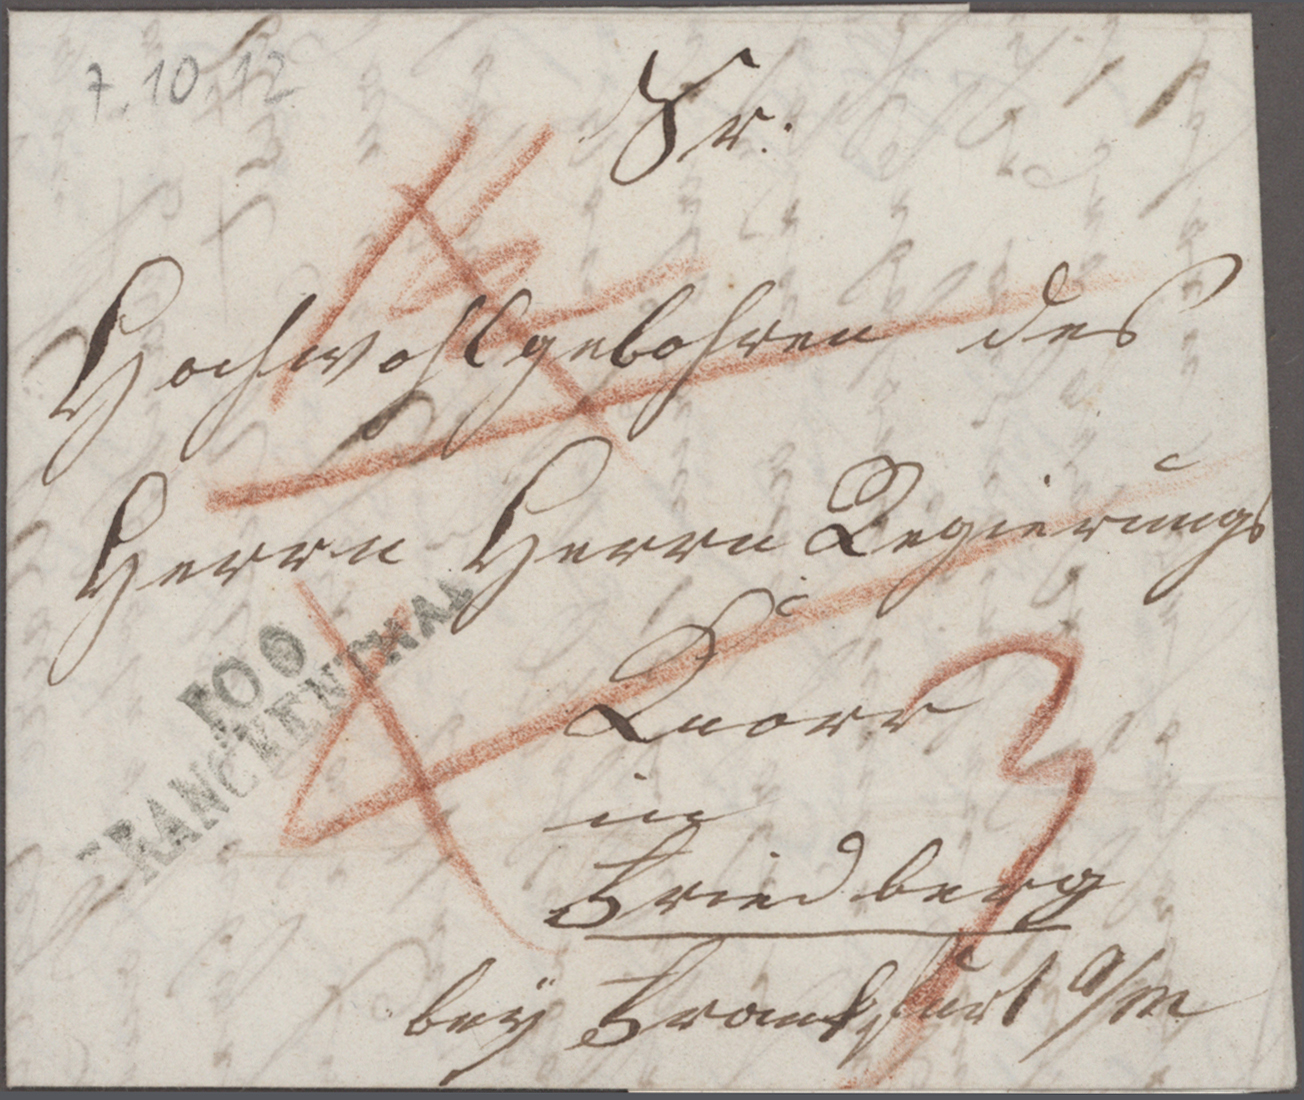 7.10.12
Sr.
Hochwohlgebohren des
Herrn Herrn Regierungs
Knorr
in
Friedberg
bey Frankfurt a/m
100
FRANCKENTHAL
3